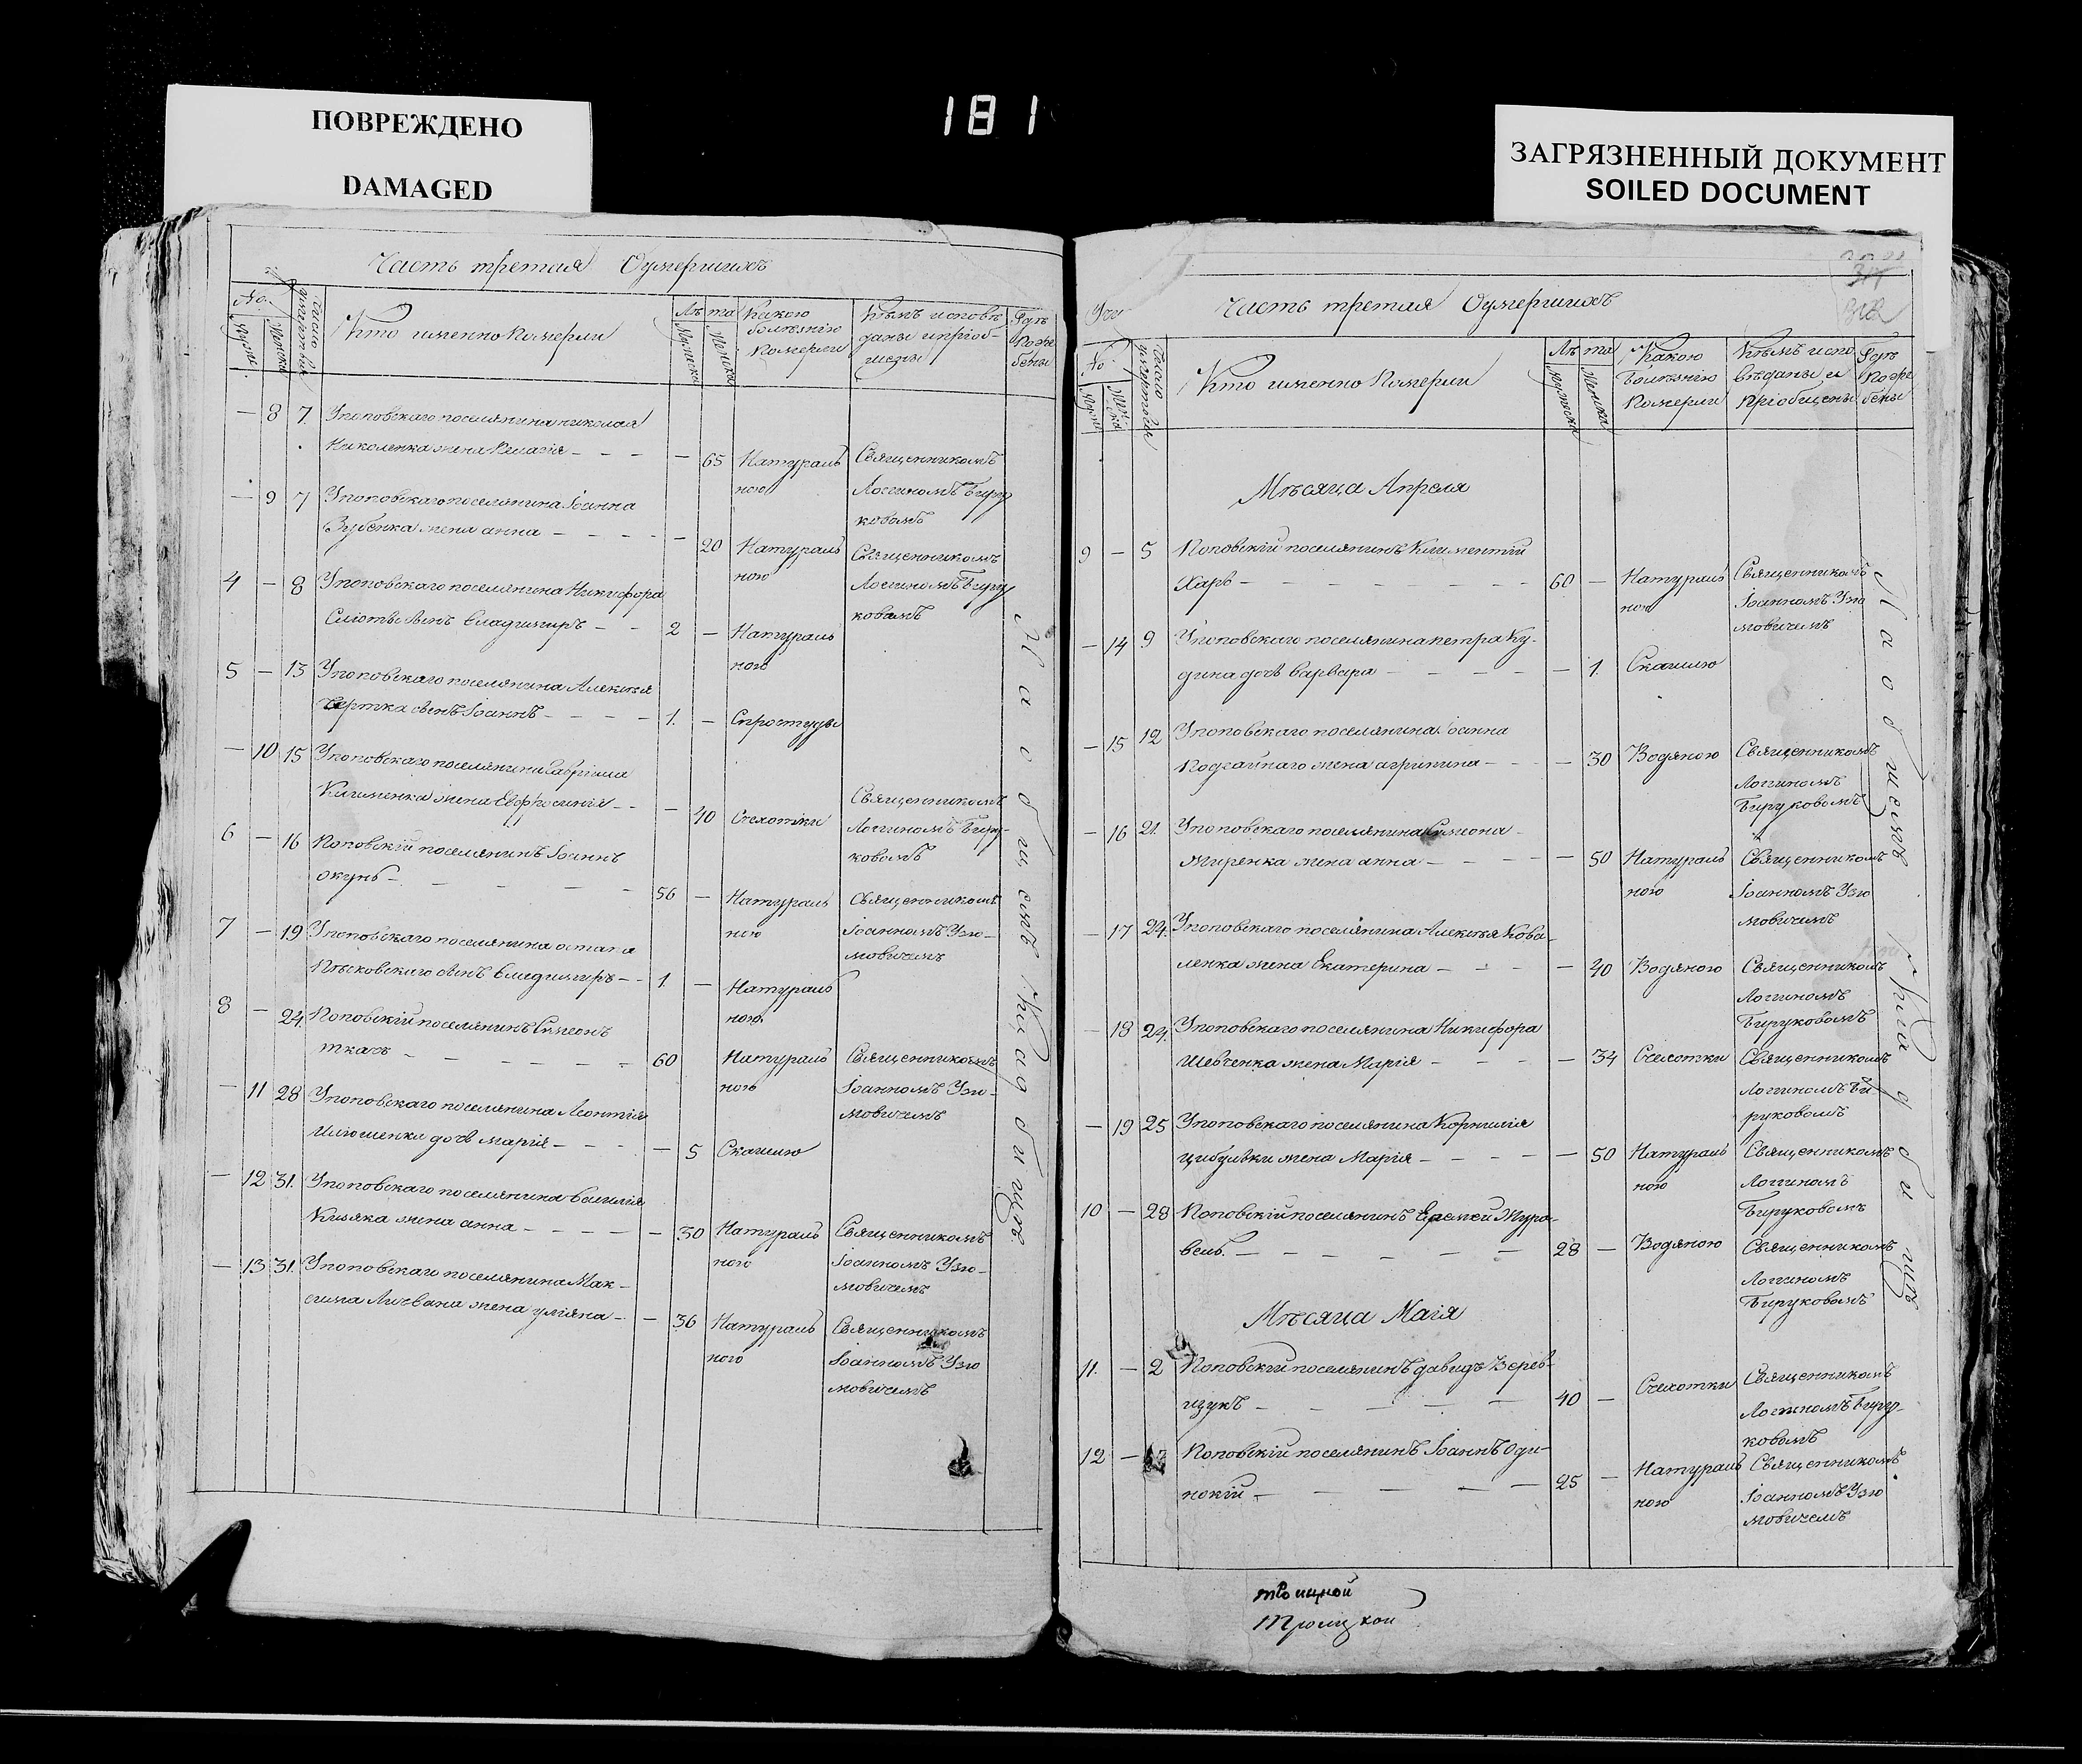 181
ПОВРЕЖДЕНО
DAMAGED
ЗАГРЯЗНЕННЫЙ ДОКУМЕНТ
SOILED DOCUMENT
Часть третая Оумершихъ
No.
Кто именно Померли
Лѣта
Какою
болѣзнію
Померли
Кѣмъ исповѣ
даны и пріоб-
щены
Гдѣ
Погре
бены
— 8 7 Упоповскаго поселянина николая
Николенка жена Пелагія — — — — 65 Натураль
ною
Священникомъ
Логиномъ Биру
ковомъ
— 9 7 Упоповскаго поселянина Іоанна
Зубенка жена анна — — — — — 20 Натураль
ною
Священникомъ
Логиномъ Биру
ковомъ
4 — 8 Упоповскаго поселянина Никифора
сынъ Владимиръ — — 2 — Натураль
ною
5 — 13 Упоповскаго поселянина Алексѣя
Чертка сынъ Іоаннъ — — — — 1. — Спростуды
— 10 15 Упоповскаго поселянина Гавріила
Клименка жена Евфросинія — — — 40 Сухотки
Священникомъ
Логиномъ Биру-
ковомъ
6 — 16 Поповскій поселянинъ Іоаннъ
окунь — — — — — 56 — Натураль
ною
Священникомъ
Іоанномъ Узю-
мовичемъ
7 — 19 Упоповскаго поселянина остапа
Пѣсковского сынъ Владимиръ — — 1 — Натураль
ною
8 — 24. Поповскій поселянинъ Симеонъ
ткачъ — — — — — — 60 Натураль
ною
Священникомъ
Іоанномъ Узю-
мовичемъ
— 11 28 Упоповскаго поселянина Леонтія
Илюшенка дочь Марія — — — — 5 Скашлю
— 12 31. Упоповскаго поселянина василія
Кизяка жена анна — — — — — 30 Натураль
ною
Священникомъ
Іоанномъ Узю-
мовичемъ
— 13 31. Упоповскаго поселянина Мак-
сима Личвана жена уліяна — — 36 Натураль
ного
Священникомъ
Іоанномъ Узю
мовичемъ
На общемъ кладбищѣ.
Часть третая Оумершихъ
No
Кто именно Померли
Лѣта
Какою
Болѣзнію
Померли
Кѣмъ испо
вѣданы и
пріобщены
Гдѣ
Погре
бены
Мѣсяца Апреля
9 — 5 Поповскій поселянинъ Климентій
Харь — — — — — — — 60 — Натураль
ною
Священникомъ
Іоанномъ Узю
мовичемъ
— 14 9 Упоповскаго поселянина петра Ку-
дина дочь варвара — — — — — 1. Скашлю
— 15 12 Упоповскаго поселянина Іоанна
Подгайнаго жена агрипина — — — 30 Водяною
Священникомъ
Логгиномъ
Бируковомъ
— 16 21. Упоповскаго поселянина Симеона
Миренка жена анна — — — — — 50 Натураль
ною
Священникомъ
Іоанномъ Узю
мовичемъ
— 17 24. Упоповскаго поселянина Алексѣя Кова-
ленка жена Екатерина — — — — — 40 Водяною
Священникомъ
Логгиномъ
Бируковомъ
— 18 24. Упоповскаго поселянина Никифора
Шевченка жена Марія — — — — — 34 Сухотки
Священникомъ
Логгиномъ Би
руковомъ
— 19 25 Упоповскаго поселянина Корнилія
цибульки жена Марія — — — — — 50 Натураль
ною
Священникомъ
Логгиномъ
Бируковомъ
10 — 28 Поповскій поселянинъ Еремей Жура-
вель. — — — — — — 28 — Водяною
Священникомъ
Логгиномъ
Бируковомъ
Мѣсяца Маія
11. — 2 Поповскій поселянинъ давидъ Верев-
щукъ — — — — — 40 — Сухотки
Священникомъ
Логиномъ Биру-
ковомъ
12 — Поповскій поселянинъ Іоаннъ Оди-
нокій — — — — — — 25 — Натураль
ною
Священникомъ
Іоанномъ Узю
мовичемъ
На общемъ кладбищѣ
троицкой
Троицкой